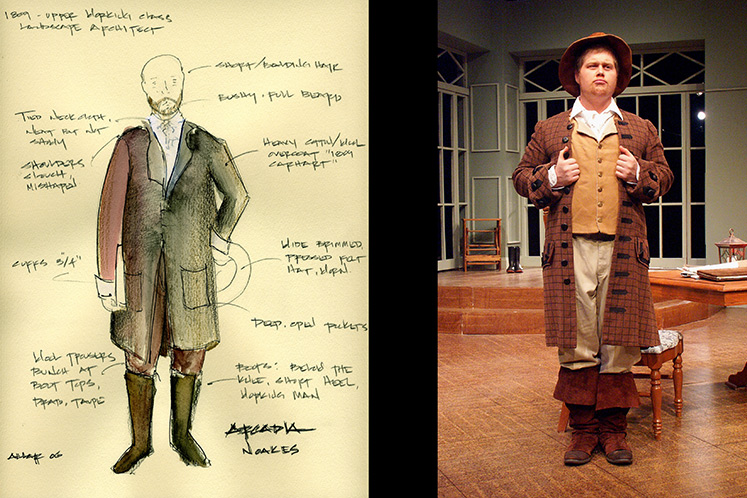 1809 - UPPER WORKING CLASS
LANDSCAPE ARCHITECT
SHORT/BALDING HAIR
BUSHY, FULL BEARD
TIED NECKCLOTH,
NEAT BUT NOT
SHOULDERS
SLOUCH,
MISSHAPEN
HEAVY COTTON/WOOL
OVERCOAT "1809
CARHART"
CUFFS 3/4"
WIDE BRIMMED,
PRESSED FELT
HAT, WORN.
DEEP, OPEN POCKETS
WOOL TROUSERS
BUNCH AT
BOOT TOPS,
DRAB, TAUPE
BOOTS: BELOW THE
KNEE, SHORT HEEL,
WORKING MAN
ARCADIA
NOAKES
06